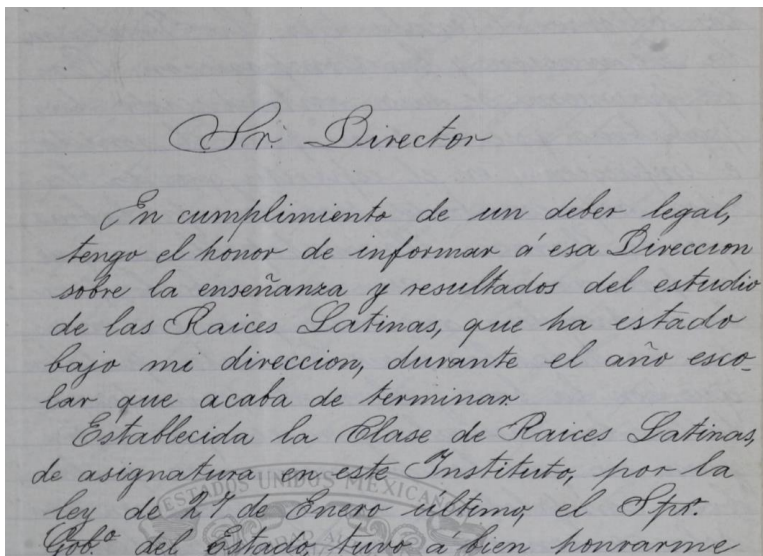 Sr. Director
En cumplimiento de un deber legal,
tengo el honor de informar á esa Direccion
sobre la enseñanza y resultados del estudio
de las Raices Latinas, que ha estado
bajo mi direccion, durante el año esco-
lar que acaba de terminar.
Establecida la Clase de Raices Latinas,
de asignatura en este Instituto, por la
ESTADOS UNIDOS MEXICANOS
ley de 27 de Enero ultimo, el Spr.
Gob.º del Estado, tuvo á bien honrarme